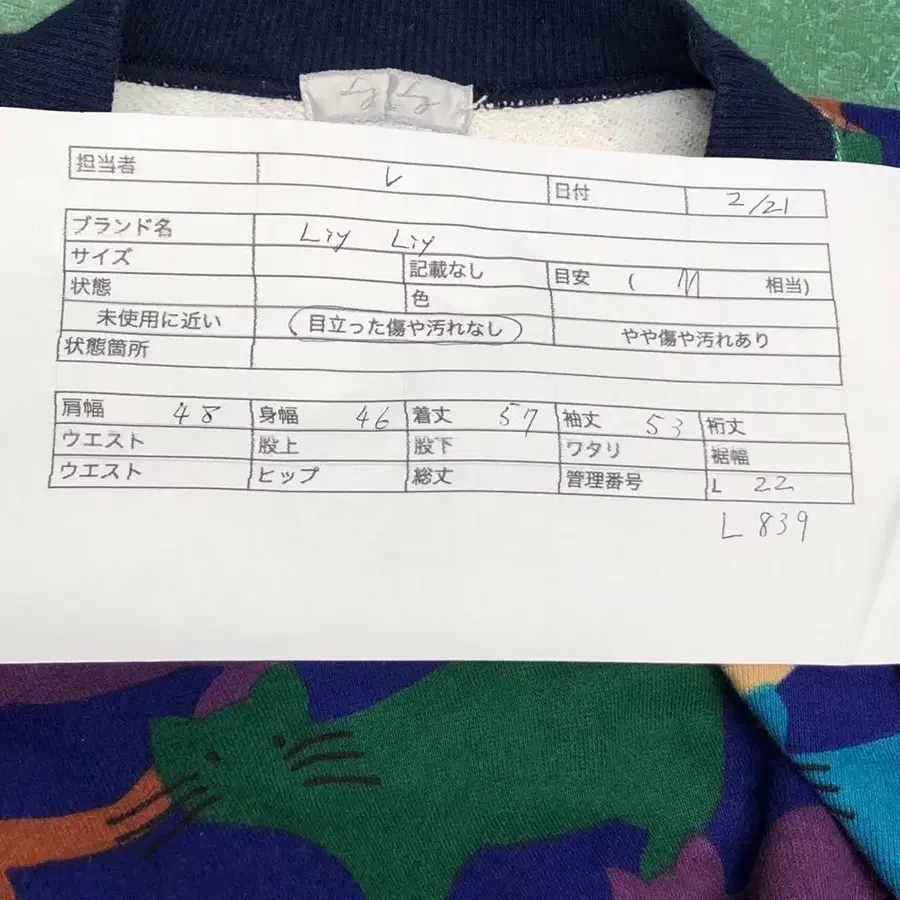 担当者 L 日付 2/21
ブランド名 Liy Liy
サイズ 記載なし 目安 ( M 相当)
状態 色
未使用に近い 目立った傷や汚れなし やや傷や汚れあり
状態箇所
肩幅 48 身幅 46 着丈 57 袖丈 53 裄丈
ウエスト 股上 股下 ワタリ 裾幅
ウエスト ヒップ 総丈 管理番号 L 22
L 839